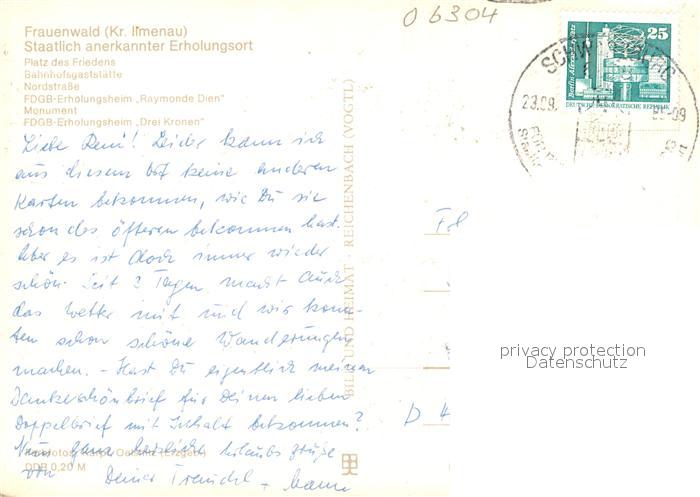 O 6304
Frauenwald (Kr. Ilmenau)
Staatlich anerkannter Erholungsort
Platz des Friedens
Bahnhofsgaststätte
Nordstraße
FDGB-Erholungsheim „Raymonde Dien"
Monument
FDGB-Erholungsheim „Drei Kronen"
25
DEUTSCHE DEMOKRATISCHE REPUBLIK
23.09.
-09
Liebe Reni! Leider kann ich
aus diesem Ort keine anderen
Karten bekommen, wie Du sie
schon des öfteren bekommen hast.
Aber es ist doch immer wieder
schön. Seit 2 Tagen macht auch
das Wetter mit und wir konn-
ten schon schöne Wanderungen
machen. - Hast Du eigentlich meinen
Dankeschönbrief für Deinen lieben
Doppelbrief mit Inhalt bekommen?
Nun ganz herzliche Urlaubsgrüße
von Deiner
BILD UND HEIMAT · REICHENBACH (VOGTL)
DDR 0,20 M
privacy protection
Datenschutz